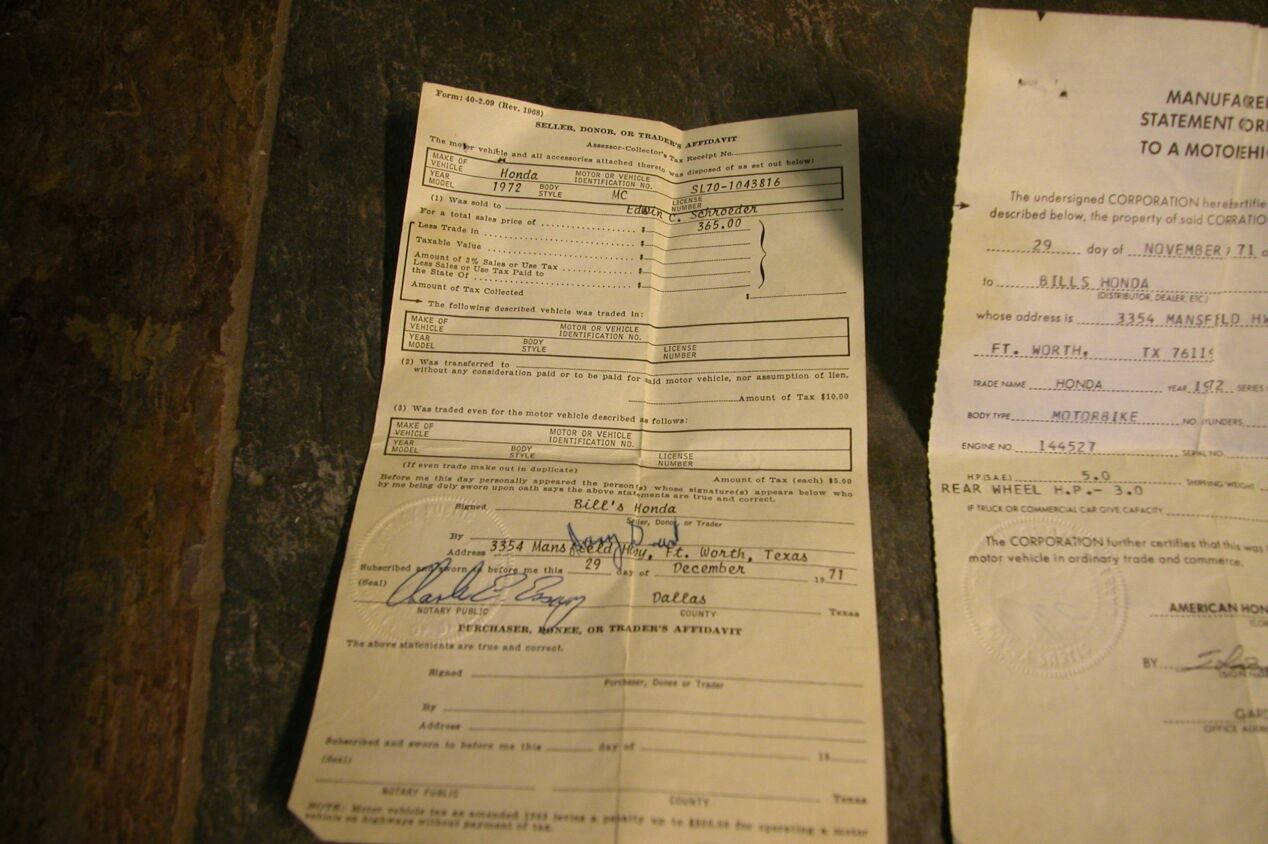 Form: 40-2.09 (Rev. 1968)
SELLER, DONOR, OR TRADER'S AFFIDAVIT
Assessor-Collector's Tax Receipt No.
The motor vehicle and all accessories attached thereto was disposed of as set out below:
MAKE OF VEHICLE Honda MOTOR OR VEHICLE IDENTIFICATION NO. SL70-1043816
YEAR MODEL 1972 BODY STYLE MC LICENSE NUMBER
(1) Was sold to Edwin C. Schroeder
For a total sales price of $ 365.00
Less Trade in $
Taxable Value $
Amount of 3% Sales or Use Tax $
Less Sales or Use Tax Paid to
the State Of $
Amount of Tax Collected $
The following described vehicle was traded in:
MAKE OF VEHICLE MOTOR OR VEHICLE IDENTIFICATION NO.
YEAR MODEL BODY STYLE LICENSE NUMBER
(2) Was transferred to
without any consideration paid or to be paid for said motor vehicle, nor assumption of lien.
Amount of Tax $10.00
(3) Was traded even for the motor vehicle described as follows:
MAKE OF VEHICLE MOTOR OR VEHICLE IDENTIFICATION NO.
YEAR MODEL BODY STYLE LICENSE NUMBER
(If even trade make out in duplicate) Amount of Tax (each) $5.00
Before me this day personally appeared the person(s) whose signature(s) appears below who
by me being duly sworn upon oath says the above statements are true and correct.
Signed Bill's Honda
Seller, Donor, or Trader
By
Address 3354 Mansfield Hwy, Ft. Worth, Texas
Subscribed and sworn to before me this 29 day of December 19 71
(Seal) Dallas
NOTARY PUBLIC COUNTY Texas
PURCHASER, DONEE, OR TRADER'S AFFIDAVIT
The above statements are true and correct.
Signed
Purchaser, Donee or Trader
By
Address
Subscribed and sworn to before me this day of 19
(Seal)
NOTARY PUBLIC COUNTY Texas
NOTE: Motor vehicle tax as amended levies a penalty up to for operating a motor
vehicle on highways without payment of tax.
MANUFA
STATEMENT
TO A MOTO
The undersigned CORPORATION
described below, the property of said
29 day of NOVEMBER, 71
to BILLS HONDA
(DISTRIBUTOR, DEALER, ETC.)
whose address is 3354 MANSFIELD
FT. WORTH, TX 76119
TRADE NAME HONDA YEAR 1972 SERIES
BODY TYPE MOTORBIKE NO. CYLINDERS
ENGINE NO. 144527 SERIAL NO.
H.P. (S.A.E.) 5.0 SHIPPING WEIGHT
REAR WHEEL H.P.- 3.0
IF TRUCK OR COMMERCIAL CAR GIVE CAPACITY
The CORPORATION further certifies that this was
motor vehicle in ordinary trade and commerce.
AMERICAN HON
BY